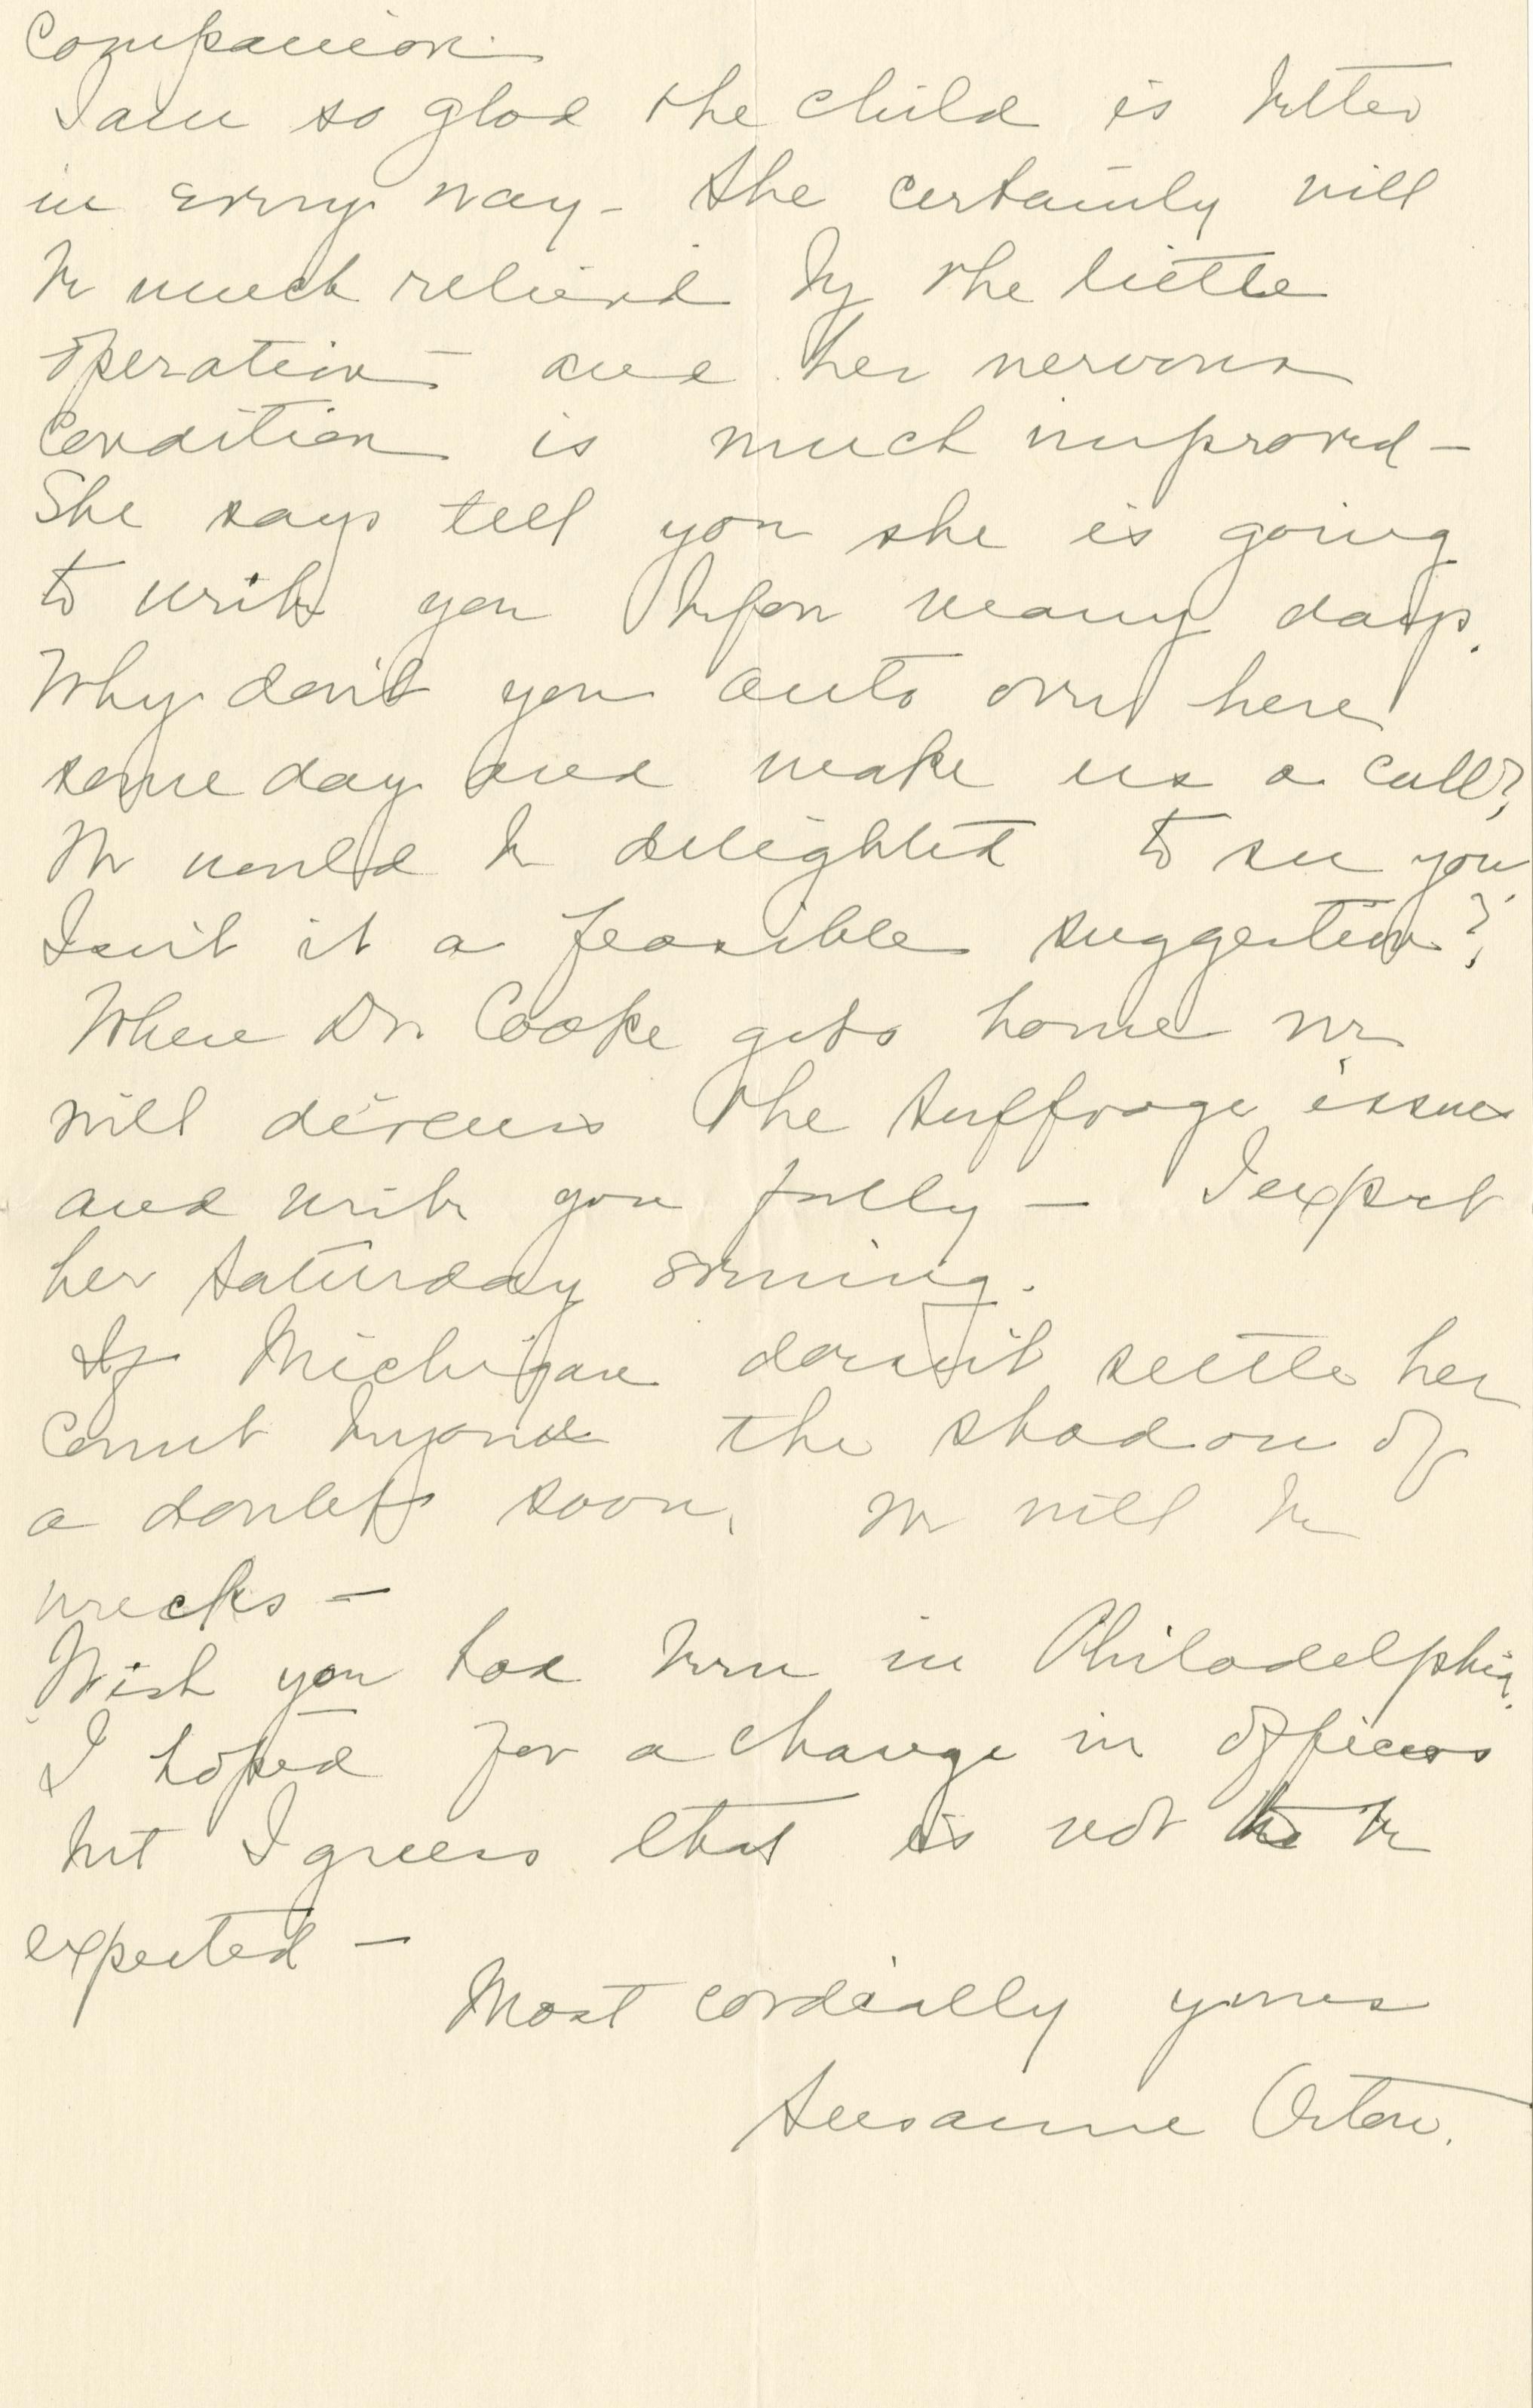 Companion.
I am so glad the child is better
in every way - She certainly will
be much relieved by the little
operation - and her nervous
condition is much improved -
She says tell you she is going
to write you before many days.
Why don't you auto over here
some day and make us a call?
We would be delighted to see you
Isn't it a feasible suggestion?
When Dr. Cooke gets home we
will discuss the Suffrage issue
and write you fully - I expect
her Saturday evening.
If Michigan doesn't settle her
count beyond the shadow of
a doubt soon, we will be
wrecks -
Wish you had been in Philadelphia.
I hoped for a change in officers
but I guess that is not to be
expected -
Most cordially yours
Susanne Orton.